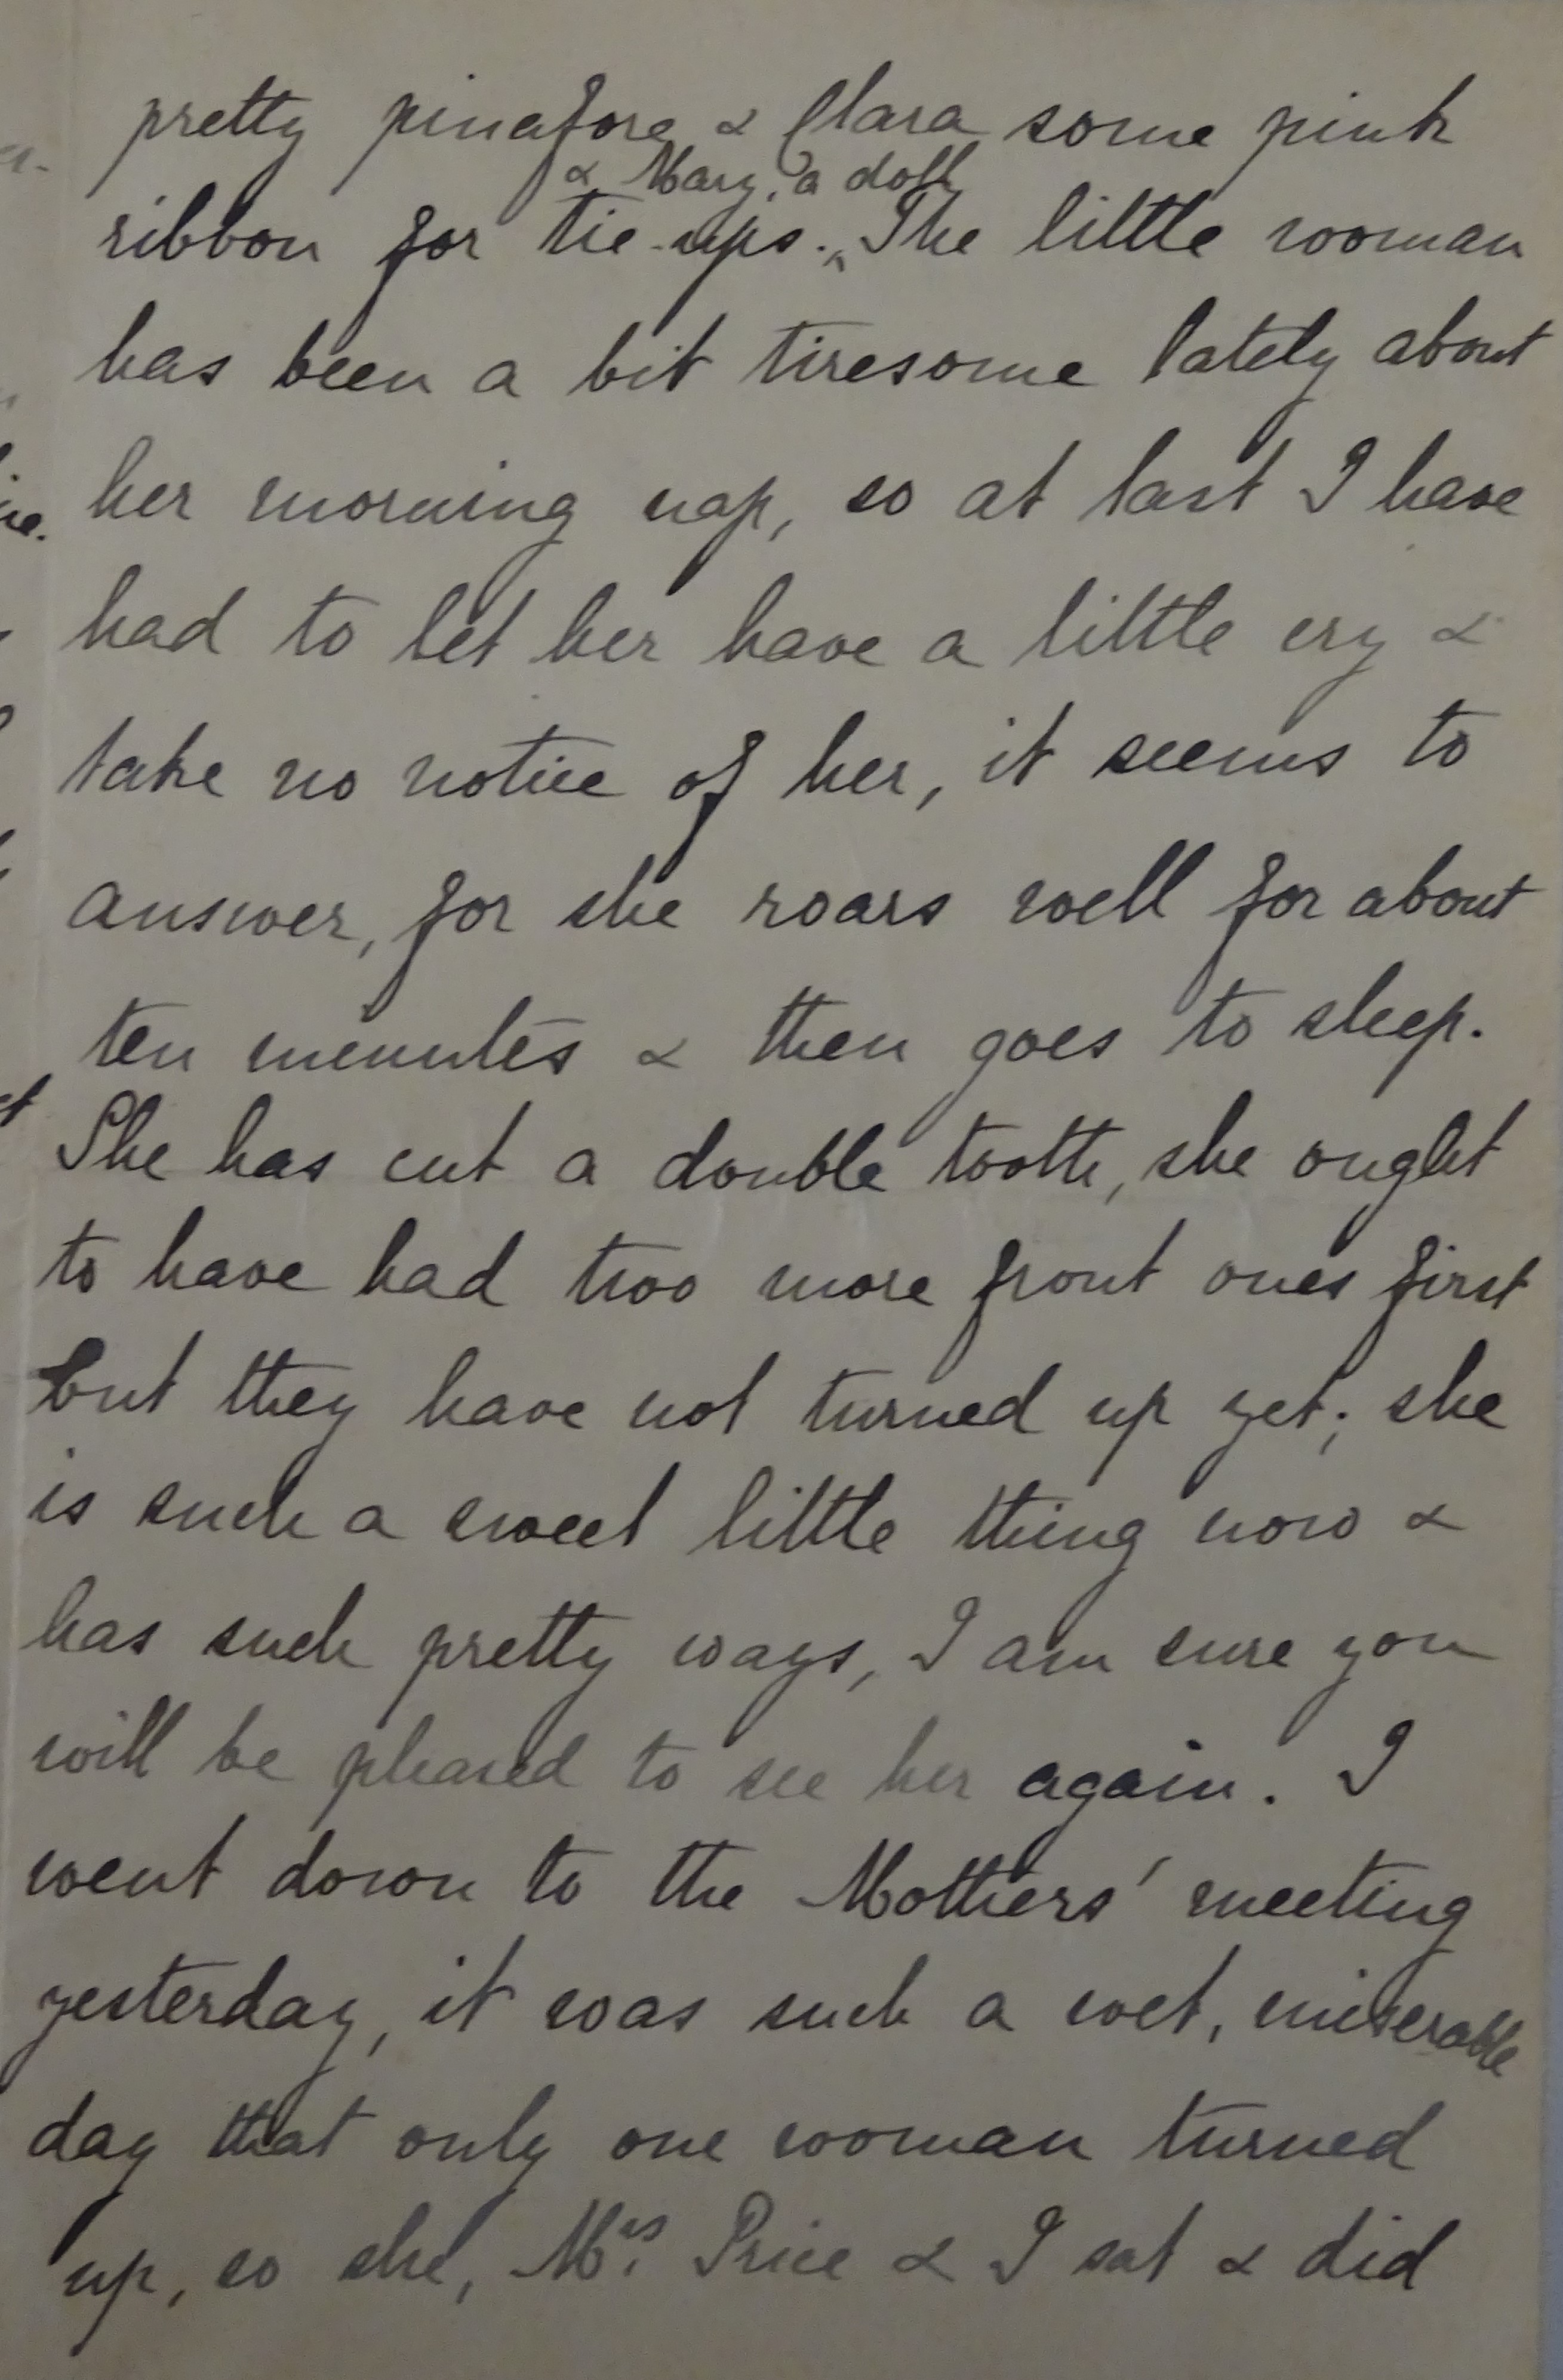 pretty pinafore & Clara some pink
& Mary, a doll
ribbon for tie-ups. The little woman
has been a bit tiresome lately about
her morning nap, so at last I have
had to let her have a little cry &
take no notice of her, it seems to
answer, for she roars well for about
ten minutes & then goes to sleep.
She has cut a double tooth, she ought
to have had two more front ones first
but they have not turned up yet; she
is such a sweet little thing now &
has such pretty ways, I am sure you
will be pleased to see her again. I
went down to the Mothers' meeting
yesterday, it was such a wet, miserable
day that only one woman turned
up, so she, Mrs. Price & I sat & did